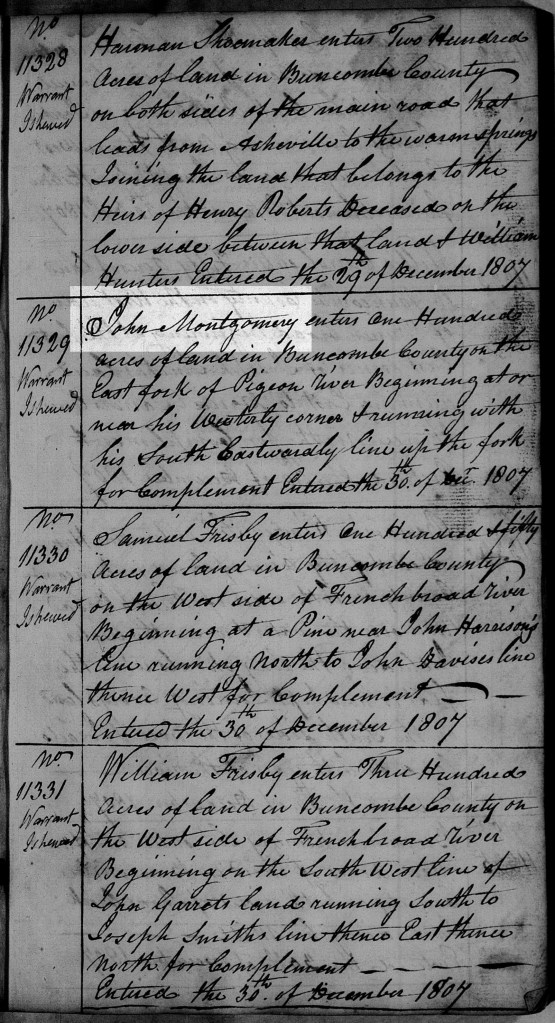 No
11328
Warrant
Ishewed
Harman Shoemaker enters Two Hundred
Acres of land in Buncombe County
on both sides of the main road that
leads from Asheville to the warm springs
Joining the land that belongs to the
Heirs of Henry Roberts Deceased on the
lower side between that land & William
Hunters Entered the 29th of December 1807
No
11329
Warrant
Ishewed
John Montgomery enters One Hundred
acres of land in Buncombe County on the
East fork of Pigeon River Beginning at or
near his Westerly corner & running with
his South Eastwardly line up the fork
for Complement Entered the 30th. of 1807
No
11330
Warrant
Ishewed
Samuel Frisby enters One Hundred & fifty
Acres of land in Buncombe County
on the West side of French broad River
Beginning at a Pine near John Harrison's
line running North to John Davises line
thence West for Complement
Entered the 30th of December 1807
No
11331
Warrant
Ishewed
William Frisby enters Three Hundred
Acres of land in Buncombe County on
the West side of French broad River
Beginning on the South West line of
John Garrets land running South to
Joseph Smiths line thence East thence
North for Complement
Entered the 30th. of December 1807